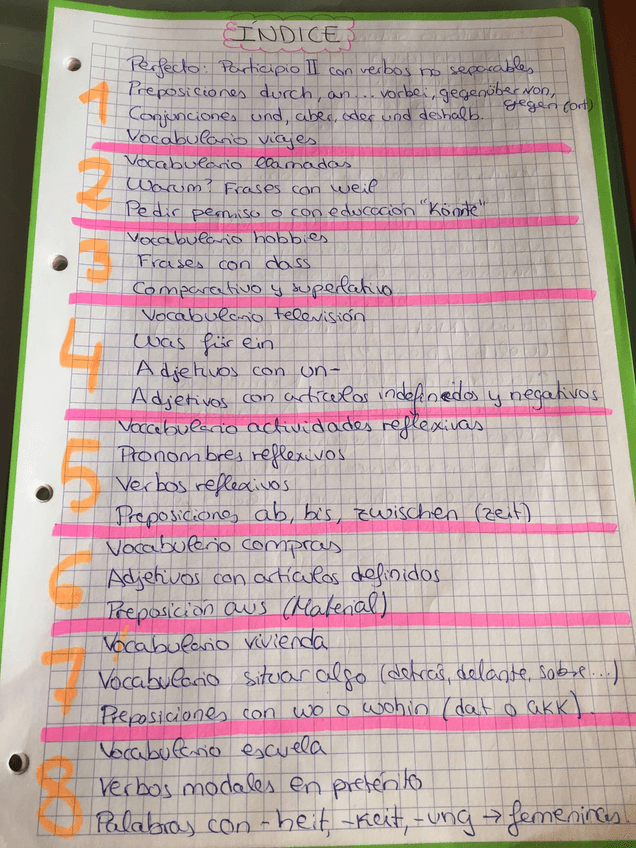 INDICE
1
Perfecto: Participio II con verbos no separables
Preposiciones durch, an... vorbei, gegenüber von,
gegen (ort)
Conjunciones und, aber, oder und deshalb.
Vocabulario viajes
2
Vocabulario llamadas
Warum? Frases con weil
Pedir permiso o con educación "Könnte"
3
Vocabulario hobbies
Frases con dass
Comparativo y superlativo
4
Vocabulario televisión
Was für ein
Adjetivos con un-
Adjetivos con artículos indefinidos y negativos
5
Vocabulario actividades reflexivas
Pronombres reflexivos
Verbos reflexivos
Preposiciones ab, bis, zwischen (zeit)
6
Vocabulario compras
Adjetivos con artículos definidos
Preposición aus (Material)
7
Vocabulario vivienda
Vocabulario situar algo (detrás, delante, sobre...)
Preposiciones con wo o wohin (dat o akk).
8
Vocabulario escuela
Verbos modales en pretérito
Palabras con -heit, -keit, -ung → femeninas.